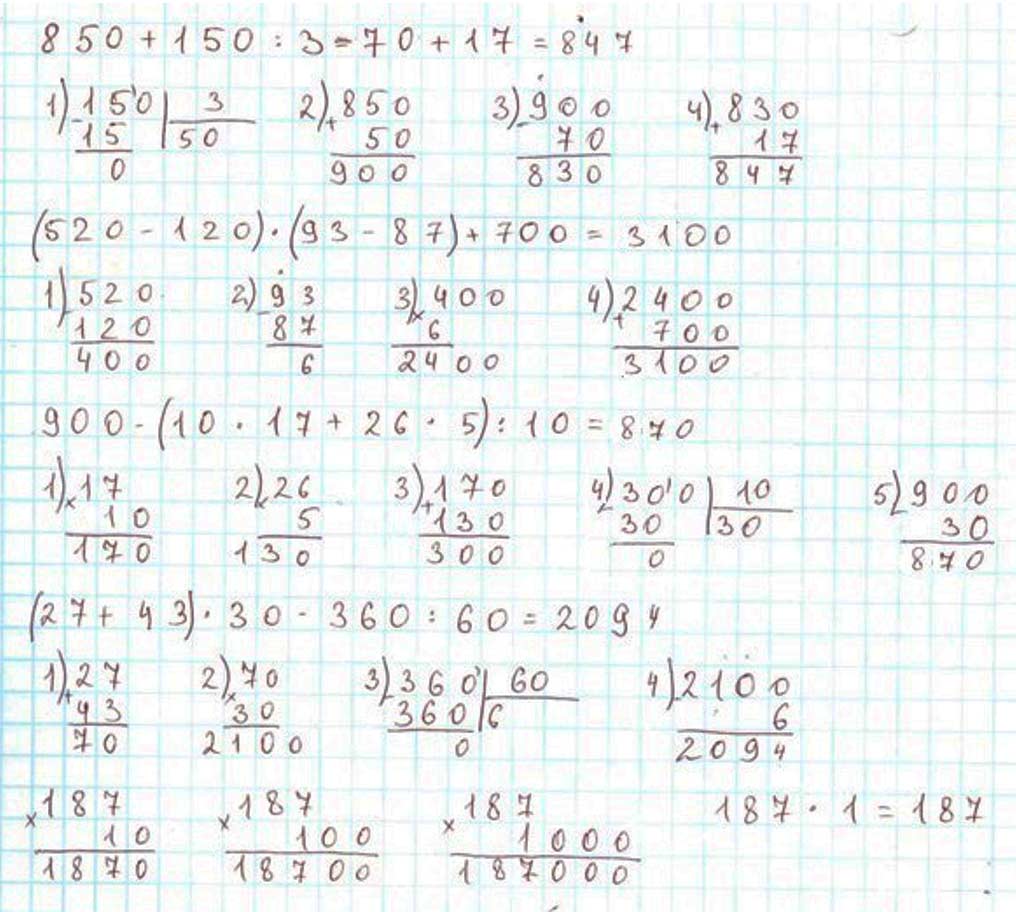 850 + 150 : 3 - 70 + 17 = 847
1) 150 | 3 2) 850 3) 900 4) 830
- 15 | 50 + 50 - 70 + 17
0 900 830 847
(520 - 120) · (93 - 87) + 700 = 3100
1) 520 2) 93 3) 400 4) 2400
- 120 - 87 × 6 + 700
400 6 2400 3100
900 - (10 · 17 + 26 · 5) : 10 = 870
1) 17 2) 26 3) 170 4) 300 | 10 5) 900
× 10 × 5 + 130 - 30 | 30 - 30
170 130 300 0 870
(27 + 43) · 30 - 360 : 60 = 2094
1) 27 2) 70 3) 360 | 60 4) 2100
+ 43 × 30 - 360 | 6 - 6
70 2100 0 2094
187 187 187 187 · 1 = 187
× 10 × 100 × 1000
1870 18700 187000